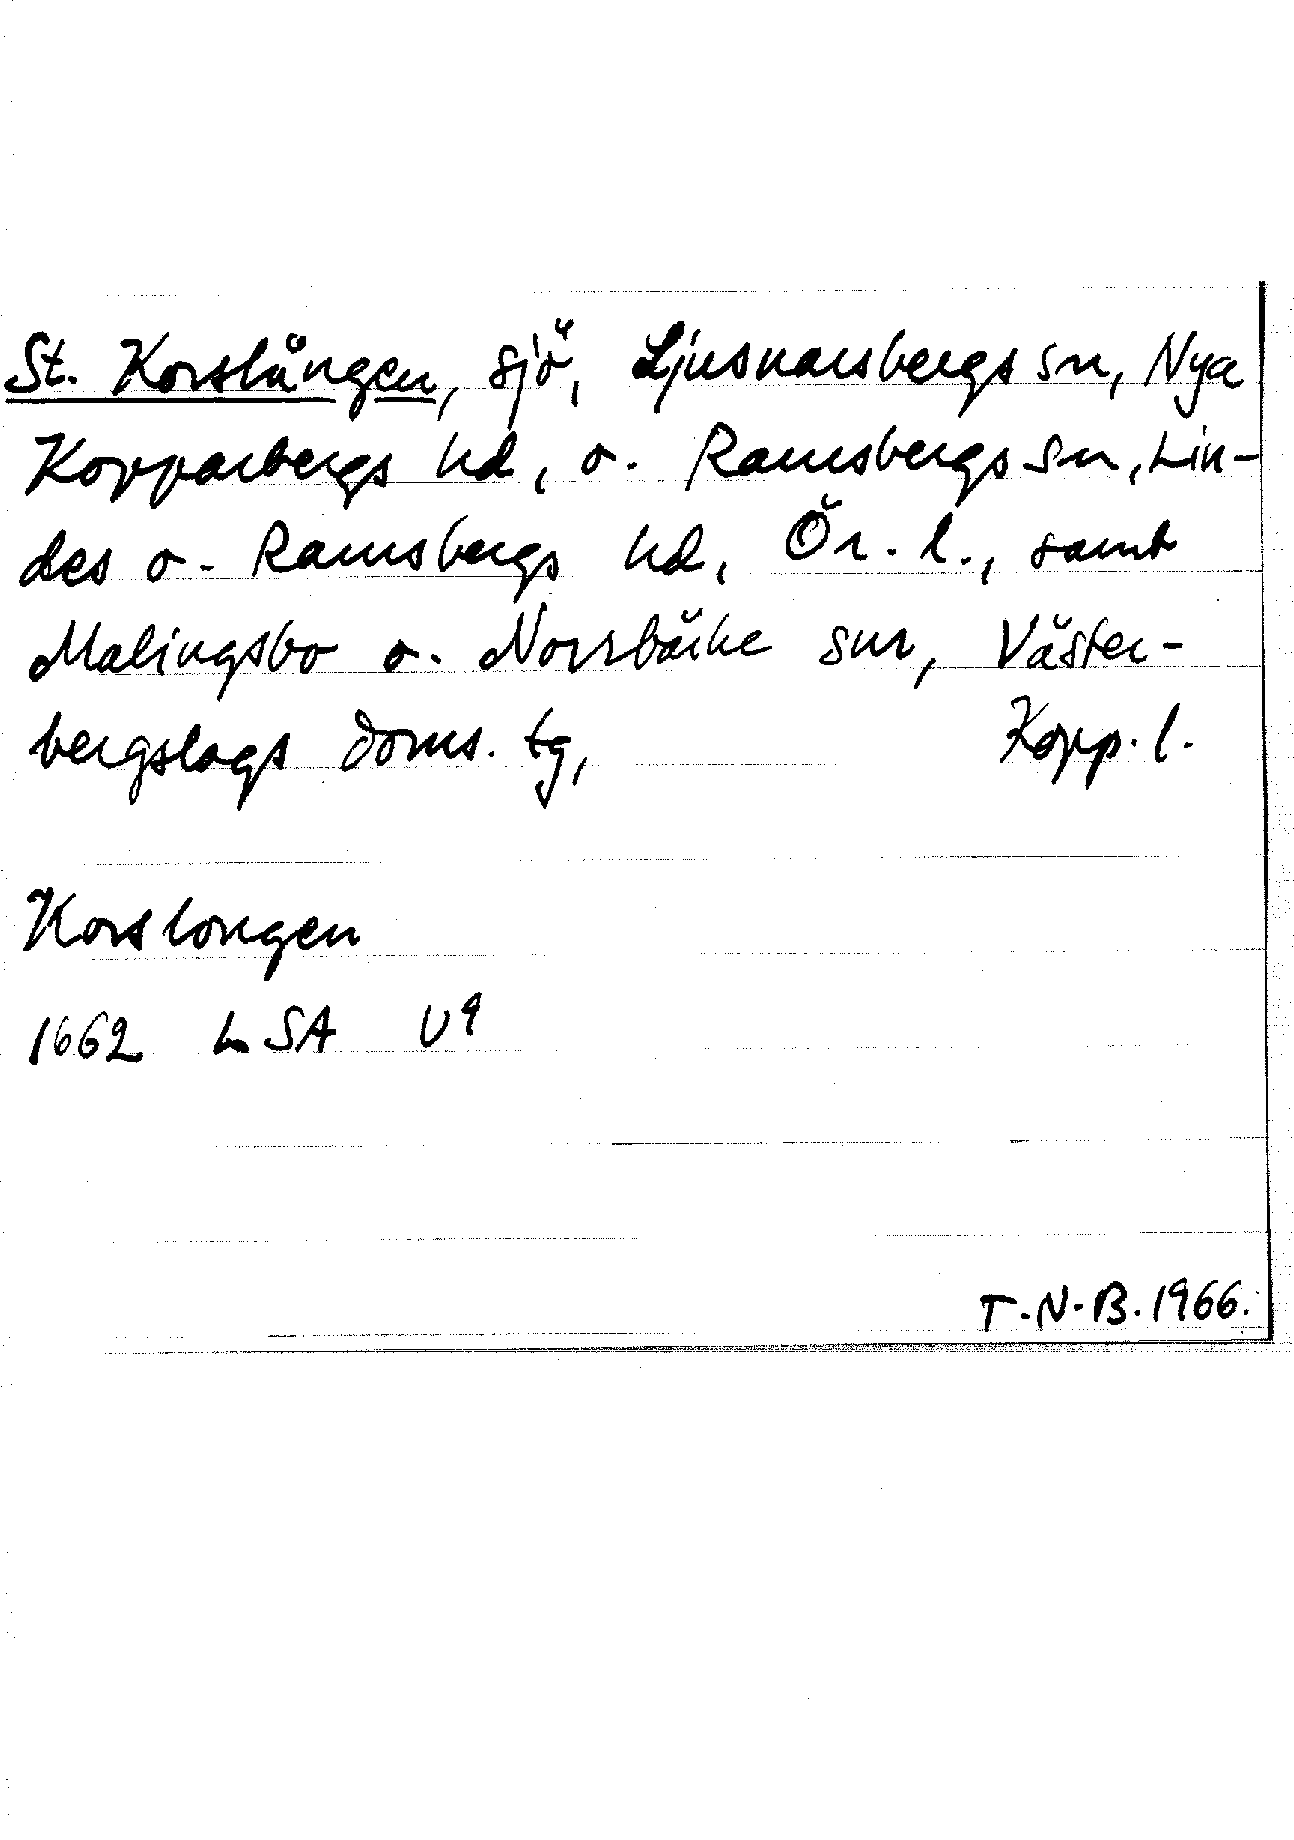 St. Korslången, sjö, Ljusnarsbergs sn, Nya
Kopparbergs hd, o. Ramsbergs sn, Lin-
des o. Ramsbergs hd, Ör. l., samt
Malingsbo o. Norrbärke snr, Väster-
bergslags doms. tg, Kopp. l.
Korslongen
1662 LSA U9
T.N.B. 1966.